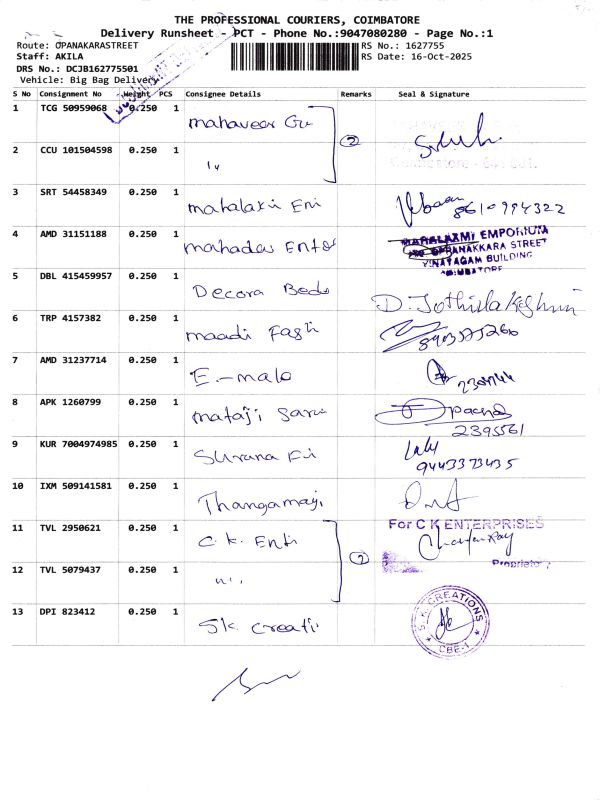 THE PROFESSIONAL COURIERS, COIMBATORE
Delivery Runsheet - PCT - Phone No.:9047080280 - Page No.:1
Route: OPANAKARASTREET RS No.: 1627755
Staff: AKILA RS Date: 16-Oct-2025
DRS No.: DCJB162775501
Vehicle: Big Bag Delivery
S No Consignment No Weight PCS Consignee Details Remarks Seal & Signature
1 TCG 50959068 0.250 1 mahaveer Gu
2 CCU 101504598 0.250 1 ② 
3 SRT 54458349 0.250 1 mahalaxi Eni 8610994322
4 AMD 31151188 0.250 1 mahadev MAHALAXMI EMPORIUM
OPANAKKARA STREET
VINAYAGAM BUILDING
COIMBATORE
5 DBL 415459957 0.250 1 Decora Beds
6 TRP 4157382 0.250 1 maadi Fash
7 AMD 31237714 0.250 1 E-malo
8 APK 1260799 0.250 1 mataji 2395561
9 KUR 7004974985 0.250 1 Surana 9443373435
10 IXM 509141581 0.250 1 Thangamayi
11 TVL 2950621 0.250 1 C.K. Enti For C K ENTERPRISES
Proprietor
12 TVL 5079437 0.250 1 ②
13 DPI 823412 0.250 1 S.K. Creati S.K. CREATIONS
CBE-1